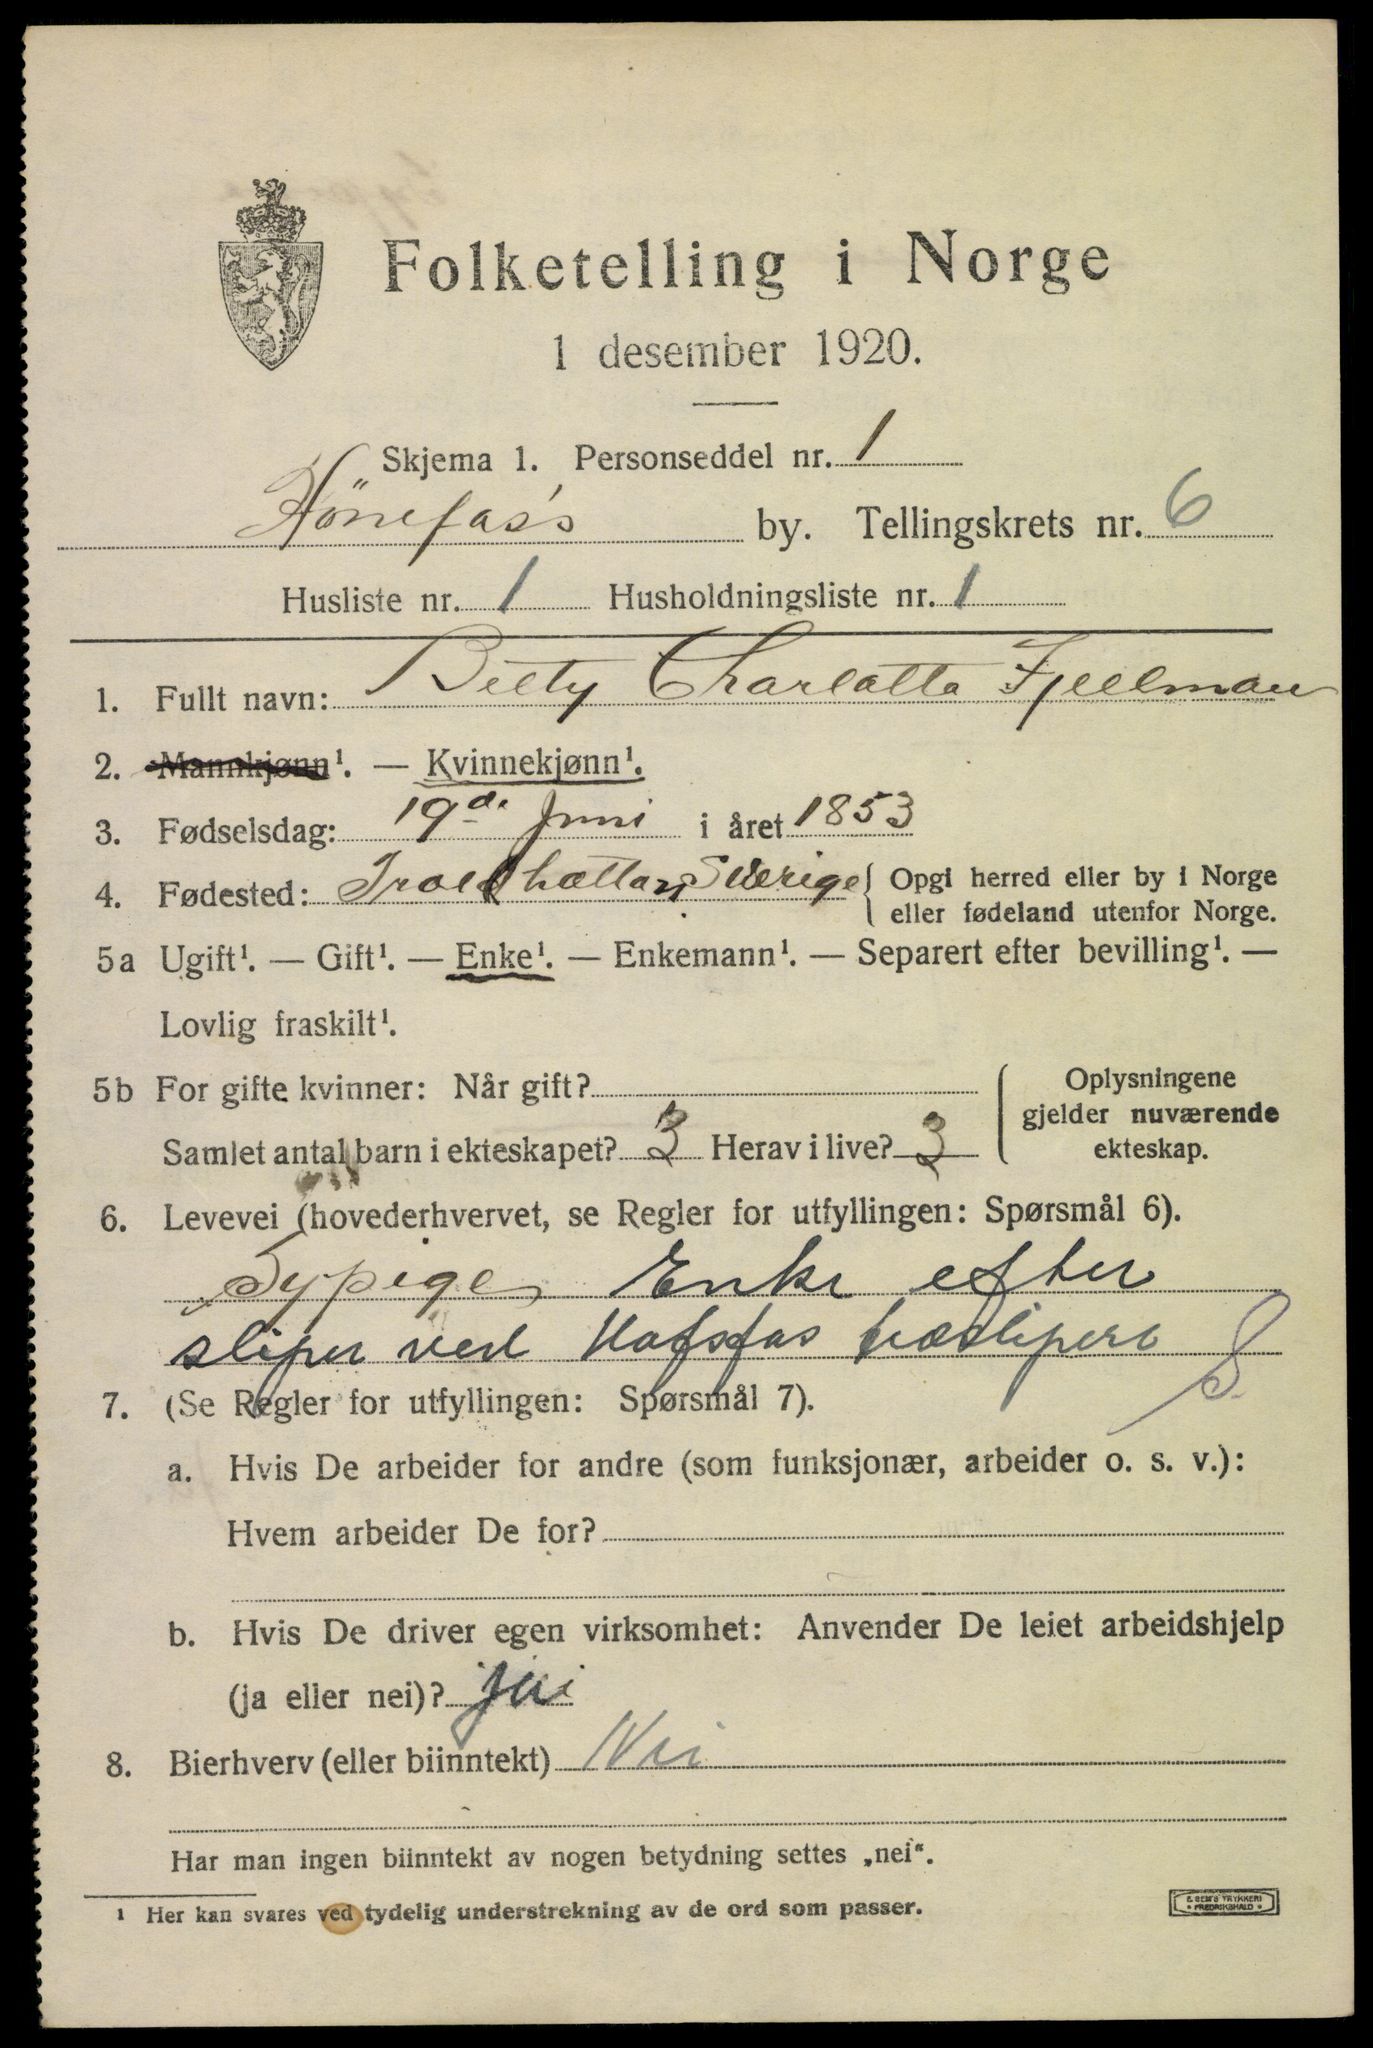 Folketelling i Norge
1 desember 1920.
Skjema 1. Personseddel nr. 1
Hönefoss by. Tellingskrets nr. 6
Husliste nr. 1 Husholdningsliste nr. 1
1. Fullt navn: Betty Charlotta Fjellman
2. Mannkjønn¹. — Kvinnekjønn¹.
3. Fødselsdag: 19de Juni i året 1853
4. Fødested: Troldhattan Sverige { Opgi herred eller by i Norge
eller fødeland utenfor Norge.
5a Ugift¹. — Gift¹. — Enke¹. — Enkemann¹. — Separert efter bevilling¹. —
Lovlig fraskilt¹.
5b For gifte kvinner: Når gift?
Samlet antal barn i ekteskapet? 3 Herav i live? 3
Oplysningene
gjelder nuværende
ekteskap.
6. Levevei (hovederhvervet, se Regler for utfyllingen: Spørsmål 6).
Sypige Enke efter
sliper ved Hofsfos træsliperi S
7. (Se Regler for utfyllingen: Spørsmål 7).
a. Hvis De arbeider for andre (som funksjonær, arbeider o. s. v.):
Hvem arbeider De for?
b. Hvis De driver egen virksomhet: Anvender De leiet arbeidshjelp
(ja eller nei)?
8. Bierhverv (eller biinntekt) Nei
Har man ingen biinntekt av nogen betydning settes „nei“.
¹ Her kan svares ved tydelig understrekning av de ord som passer.
E. SEM'S TRYKKERI
FREDRIKSHALD